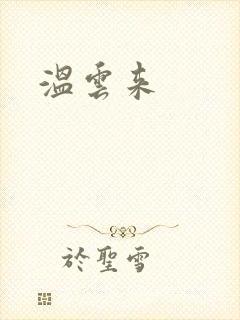 溫雲來
於聖雪